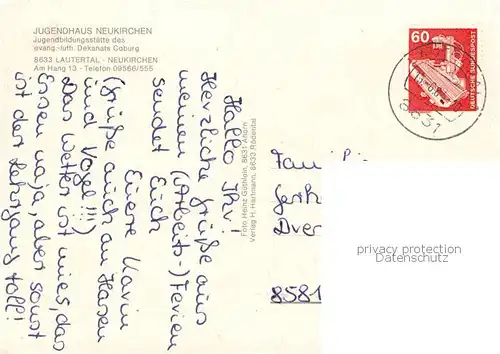 JUGENDHAUS NEUKIRCHEN
Jugendbildungsstätte des
evang.-luth. Dekanats Coburg
8633 LAUTERTAL - NEUKIRCHEN
Am Hang 13 - Telefon 09566/555
Hallo Ihr!
Herzliche Grüße aus
meinen (Arbeits-) Ferien
sendet Euch
Euere Karin
(Grüße auch an Hasen
und Vögel!!!)
Das Wetter ist mies, das
Essen naja, aber sonst
ist der Lehrgang toll!
Foto Heinz Güthlein, 8631 Ahorn
Verlag H. Hartmann, 8633 Rödental
60
DEUTSCHE BUNDESPOST
8631
Fam
Dver
8581
privacy protection
Datenschutz